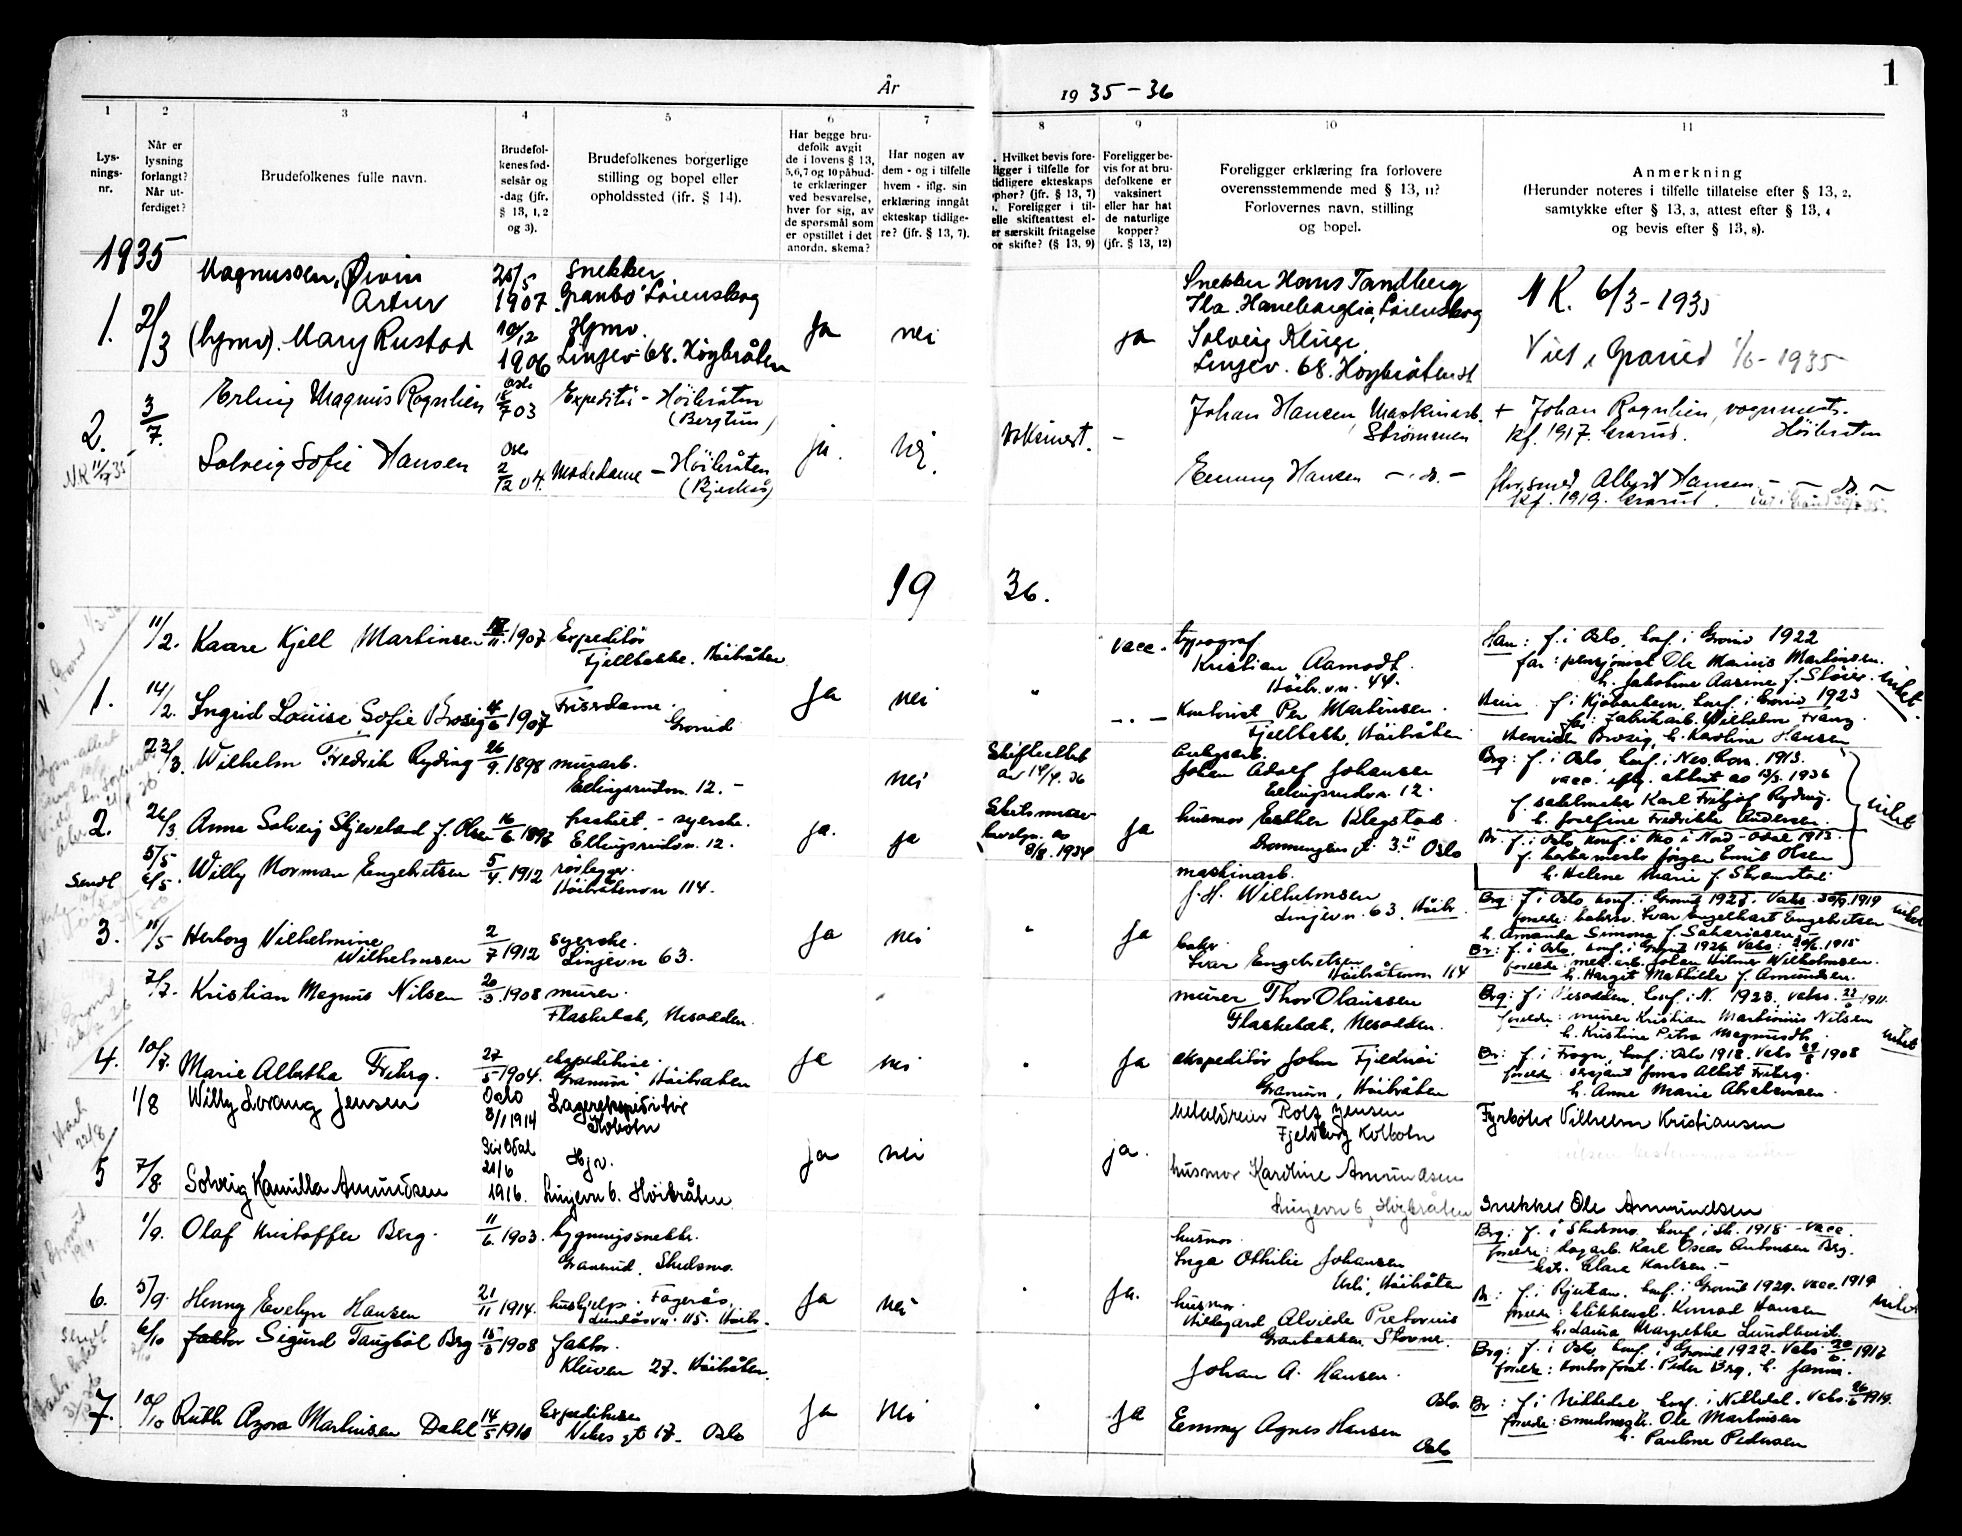 1
År
19 35-36
1
Lys-
nings-
nr.
2
Når er
lysning
forlangt?
Når ut-
ferdiget?
3
Brudefolkenes fulle navn.
4
Brudefol-
kenes fød-
selsår og
-dag (jfr.
§ 13, 1, 2
og 3).
5
Brudefolkenes borgerlige
stilling og bopel eller
opholdssted (jfr. § 14).
6
Har begge bru-
defolk avgit
de i lovens § 13,
5, 6, 7 og 10 påbud-
te erklæringer
ved besvarelse,
hver for sig, av
de spørsmål som
er opstillet i det
anordn. skema?
7
Har nogen av
dem - og i tilfelle
hvem - iflg. sin
erklæring inngåt
ekteskap tidlige-
re? (jfr. § 13, 7).
8
Hvilket bevis fore-
ligger i tilfelle for
tidligere ekteskaps
ophør? (jfr. § 13, 7)
Foreligger i til-
elle skifteattest el-
er særskilt fritagelse
or skifte? (§ 13, 9)
9
Foreligger be-
vis for at bru-
defolkene er
vaksinert
eller har hat
de naturlige
kopper?
(jfr. § 13, 12)
10
Foreligger erklæring fra forlovere
overensstemmende med § 13, 11?
Forlovernes navn, stilling
og bopel.
11
Anmerkning
(Herunder noteres i tilfelle tillatelse efter § 13, 2,
samtykke efter § 13, 3, attest efter § 13, 4
og bevis efter § 13, 8).
1935
1. 2/3
Magnussen, Øivin
Artur
(hjmv). Mary Rustad
20/5
1907
10/12
1906
Snekker
Granbo Lørenskog
Hjmv.
Linjev. 68. Høybråten
ja
nei
ja
Snekker Hans Tandberg
Solveig Kluge
Linjev. 68. Høybråten st
NK. 6/3-1935
Viet i Grorud 1/6-1935
2.
3/7.
NK 11/7 35
Erling Magnus Rognlien
Solveig Sofie Hansen
Oslo
18/7 03
Oslo
2/12 04.
Expeditør - Høibråten
(Bergtun)
Modedame - Høibråten
ja.
nei.
Vaksinert.
-
Johan Hansen, Maskinarb.
Strømmen
Emmy Hansen - " do. -
+ Johan Rognlien, vognment.
kf. 1917. Grorud. Høibråten
Albert Hansen - " - do. -
kf. 1919. Grorud.
19 36.
1.
11/2.
14/2.
Kaare Kjell Martinsen
Ingrid Louise Sofie Brosig
11. 1907
6 1907
Expeditør
Fjellbakke. Høibråten
Frisrdame
Grorud
Ja
nei
"
vacc.
- " -
typograf
Kristian Aamodt.
Høibr.vn. 44.
Kontorist Per Martinsen.
Fjellbakk, Høibråten
Ham: f. i Oslo, konf. i Grorud 1922
far: pensjonist Ole Marius Martinsen.
h. Jakobine Aasine f. Støver.
f. i Kjøbenhavn, konf. i Grorud 1923
far: fabrikarb. Wilhelm Franz
Henrich Brosig, h. Karoline Hansen
2.
23/3.
26/3.
Wilhelm Fredrik Ryding
Anna Solveig Skjeveland f. Olsen
26/9. 1898
16/6 1897
murarb.
Ellingsrudvn. 12. -
fraskilt - syerske.
Ellingsrudvn. 12.
ja.
nei
ja
Skifteattest
av 14/4. 36
Skilsmiss
bevilgn. av
8/8. 1934
ja
Johan Adolf Johansen
Ellingsrudvn. 12.
husmor Esther Klegstad
Dronningens gt. 3 II Oslo
Brg: f. i Oslo, konf. i Nes, Rom. 1913.
vacc. iflg. attest av 13/3. 1936
f. salelmaker Karl Fritjof Ryding.
h. Josefine Fredrikke Andersen.
Br. f. i Oslo, konf. i Mo i Nord-Odal 1913.
f. barbermester Jørgen Emil Olsen
h. Helene Marie f. Stramstad
3.
Sendt
5/5
6/5.
11/5
Willy Norman Engebretsen
Herborg Vilhelmine
Wilhelmsen
5/4. 1912
2/7 1912
rørlegger
Høibråtenvn 114.
syerske.
Linjevn 63.
ja
nei
"
ja
maskinarb.
J. H. Wilhelmsen
Linjevn. 63. Høibr.
Ivar Engebretsen
Høibråtenvn 114
Brg: f. i Oslo, konf. i Grorud 1927. Vaks. 30/9. 1919
foreldr: Ivar Engelhart Engebretsen
h. Amanda Simona f. Sakariasen.
Br: f. i Oslo, konf. i Grorud 1926 Vaks: 20/6. 1915
foreldr: Johan Hilmer Wilhelmsen.
h. Hargit Mathilde f. Amundsen.
4.
7/7.
10/7.
Kristian Magnus Nilsen
Marie Albertha Friberg.
20/3. 1908
27/5 1904.
murer.
Flaskebæk, Nesodden.
ekspeditrise.
"Granum" Høibraten
ja
nei
"
ja
murer Thor Olaussen
Flaskebæk, Nesodden.
ekspeditør John Fjeldnæi
Granum, Høibråten
Brg: f. i Nesodden, konf. i N. 1923. vaks. 22/6 1911.
foreldr: murer Kristian Martinius Nilsen
h. Kristine Petra Magnusdtr.
Br: f. i Frogn, konf. i Oslo 1918. Vaks 29/8 1908
foreldr: sersjant Jonas Albert Friberg.
h. Anne Marie Abrahamsen.
5
1/8
7/8
Willy Lorang Jensen
Solveig Kamilla Amundsen
Oslo
8/1 1914
Sør Odal
21/6
1916.
Lagerekspeditør
Kolbotn
Hjv.
Linjevn 6. Høibråten
ja
nei
ja.
Rolf Jensen
Fjeldberg Kolbotn
husmor Karoline Amundsen
Linjevn 6, Høybråten
Fyrbøter Vilhelm Kristiansen
Snekker Ole Amundsen
6.
1/9.
5/9.
Olaf Kristoffer Berg.
Henny Evelyn Hansen
11/6. 1903.
21/11 1914.
bygningssnekker.
Granerud, Skedsmo.
hushjelp. Fagerås,
Lundåsvn. 115. Høibr.
ja
nei
"
ja.
husmor
Inga Othilie Johansen
Høibråten
husmor.
Hildegard Alvilde Pretorius
Granbakken, Stovner.
Brg: f. i Skedsmo, konf. i Sk. 1918 - vacc.
foreldr: Karl Oscar Antonsen Berg.
Clara Karlsen. -
Br: f. i Rjukan, konf. i Grorud 1929. vacc. 1919
foreldr: blikkensl. Konrad Hansen
h. Laura Margrethe Lundkvist
7.
sendt
6/10
10/10
faktor Sigurd Taugbøl Berg
Ruth Azora Martinsen Dahl
15/3 1908
14/5 1910
faktor.
Kløven 27. Høibråten.
Expeditrise
Nikes gt 17. Oslo
ja
nei
"
ja
Johan A. Hansen.
Oslo.
Emmy Agnes Hansen
Oslo
Brg: f. i Oslo, konf. i Grorud 1922. Vaks 20/6. 1917
foreldr: Peder Berg, h. Janna.
Br: f. i Nittedal, konf. i Nittedal. Vaks. 26/6 1919.
foreldr: Ole Martinsen
h. Pauline Pedersen